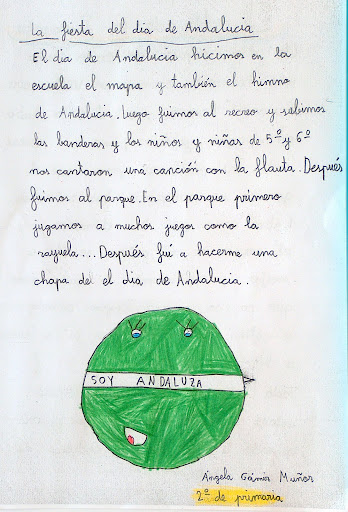 La fiesta del dia de Andalucia
El dia de Andalucia hicimos en la
escuela el mapa y también el himno
de Andalucia. Luego fuimos al recreo y subimos
las banderas y los niños y niñas de 5º y 6º
nos cantaron una canción con la flauta. Después
fuimos al parque. En el parque primero
jugamos a muchos juegos como la
rayuela... Después fui a hacerme una
chapa de el dia de Andalucia.
SOY ANDALUZA
Ángela Gámis Muñoz
2º de primaria